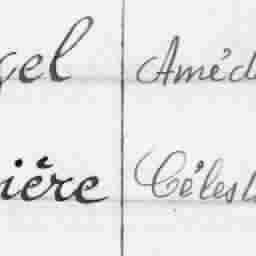 çel Améd
ière Célest